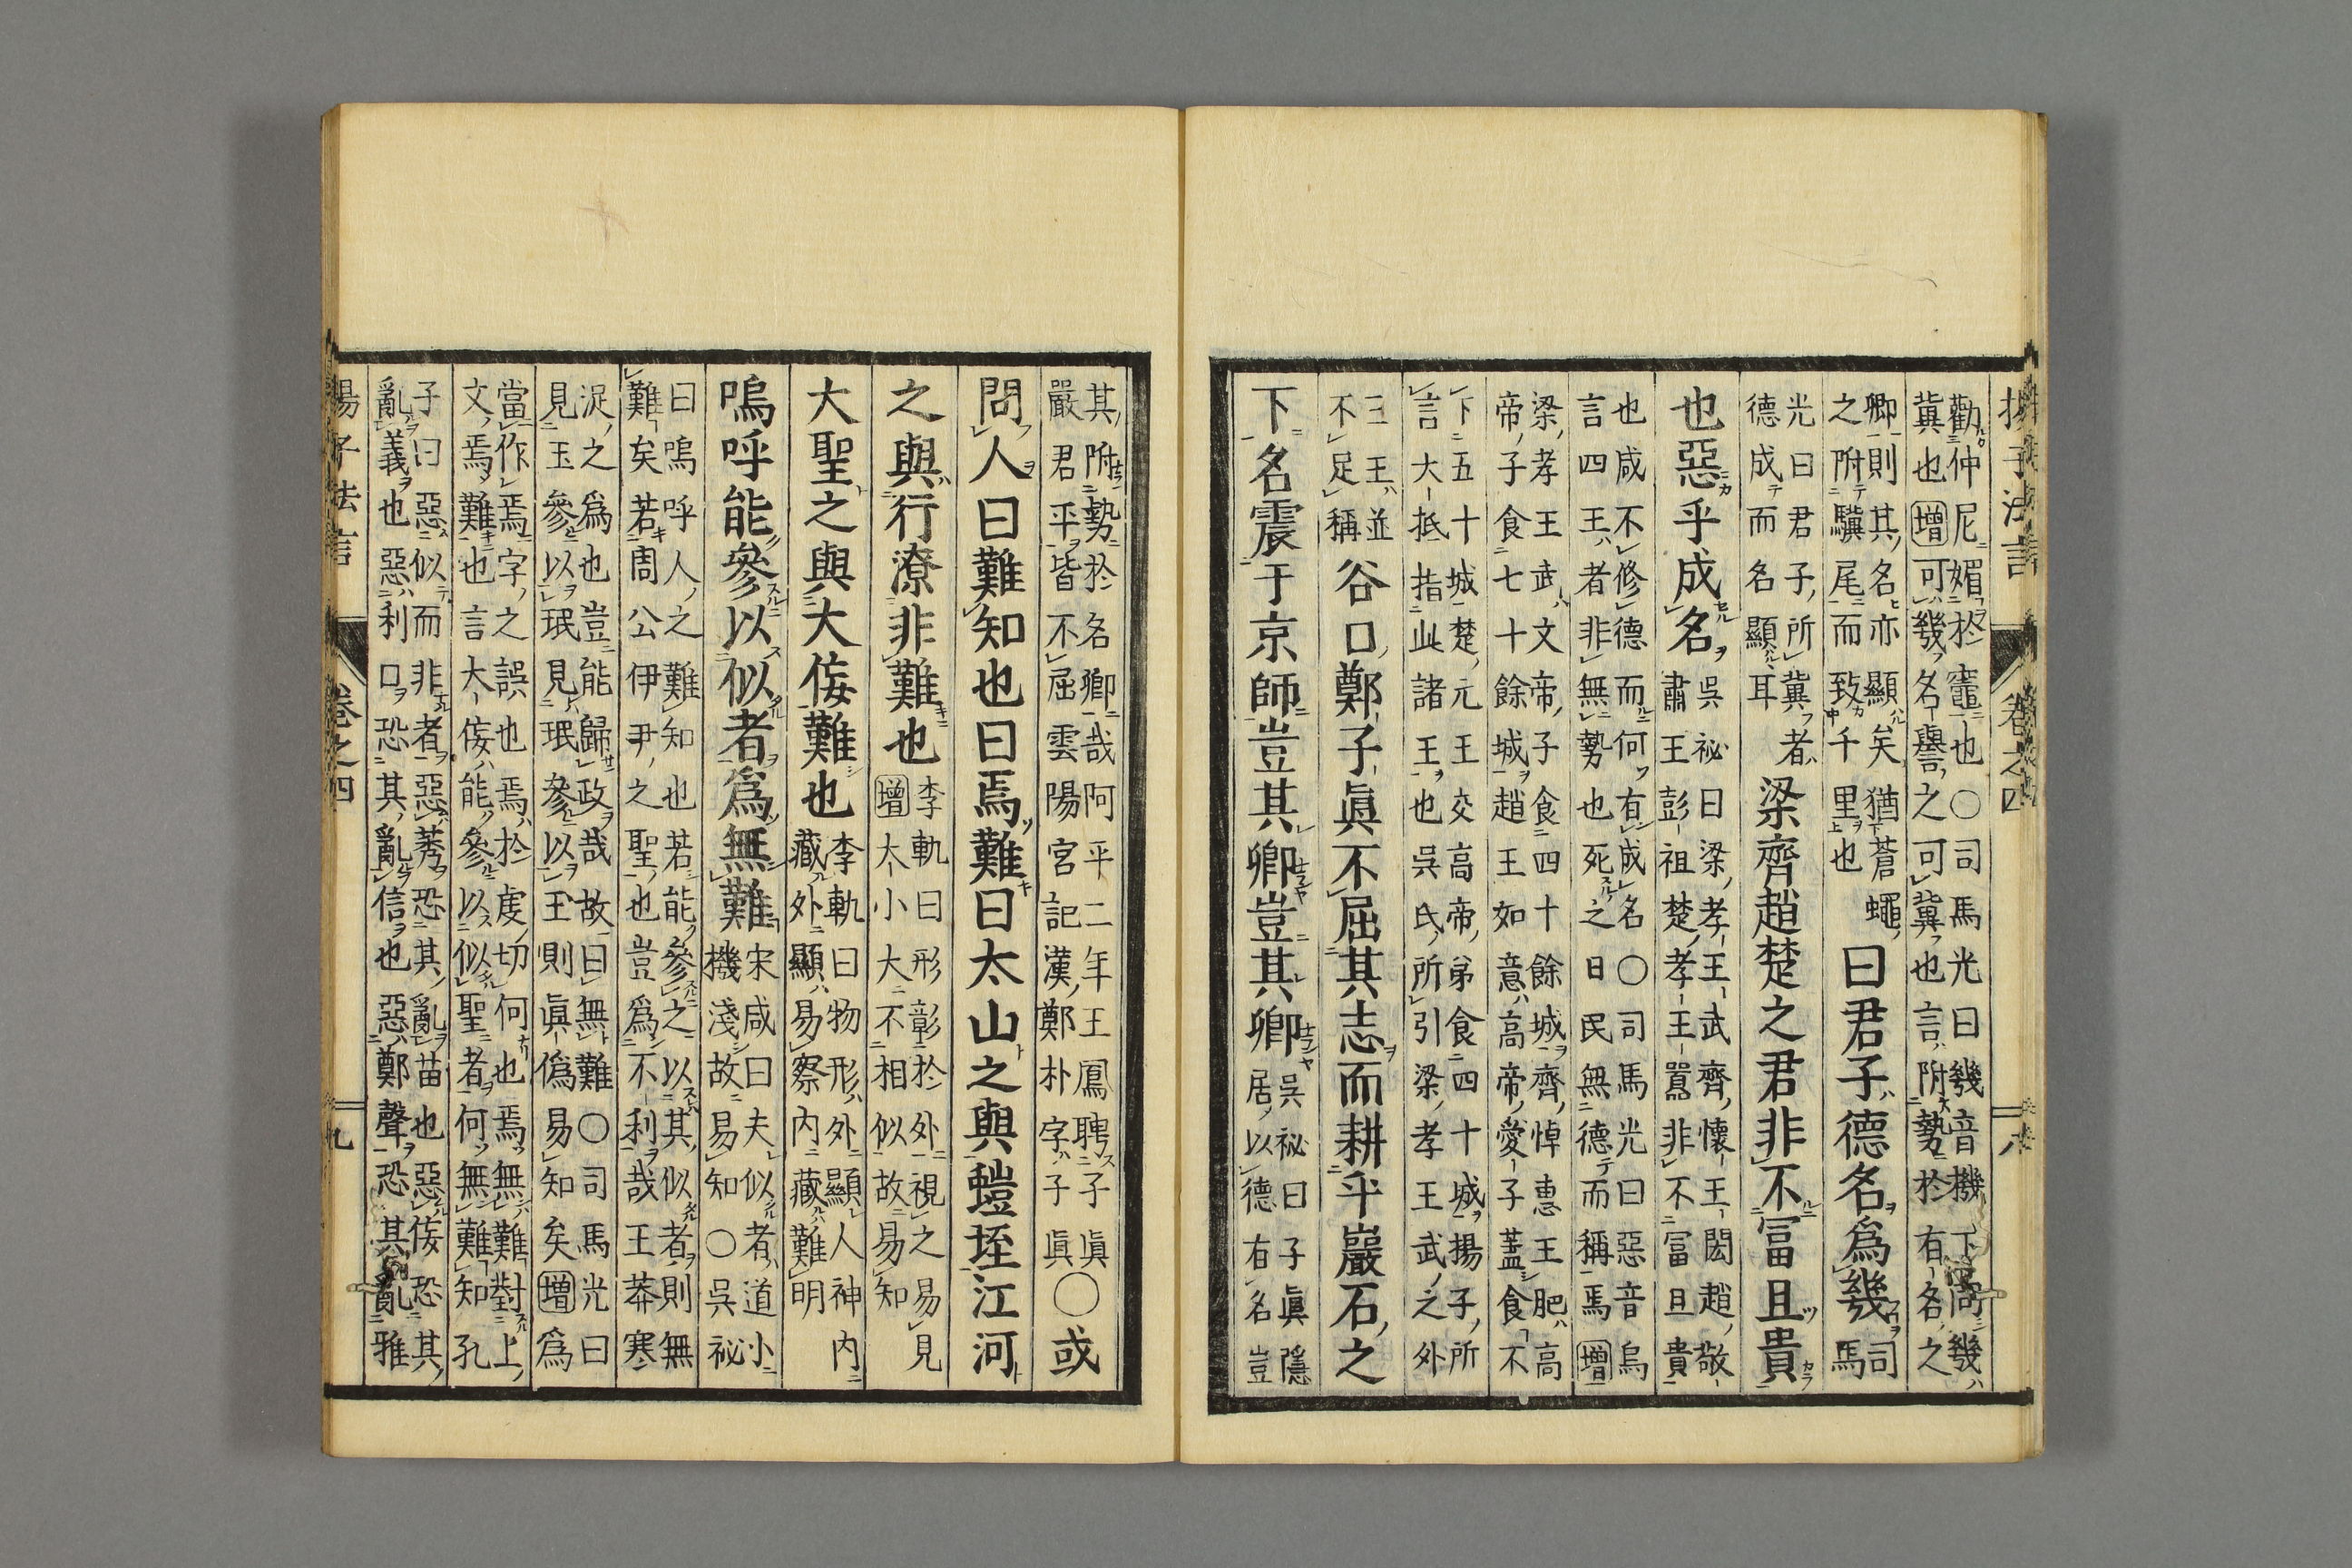 揚子法言 卷之四 八
勸仲尼媚於竈也○司馬光曰幾音機下同幾ハ
冀也增可幾名譽之可冀也言附勢於有名之
卿則其名亦顯矣猶蒼蠅
之附驥尾而致千里也
曰君子德名爲幾司
馬
光曰君子所冀者
德成而名顯耳
梁齊趙楚之君非不冨且貴
也惡乎成名
吳祕曰梁孝王武齊懷王閎趙敬
肅王彭祖楚孝王囂非不冨且貴
也咸不修德而何有成名○司馬光曰惡音烏
言四王者非無勢也死之日民無德而稱焉增
梁孝王武文帝子食四十餘城齊悼惠王肥高
帝子食七十餘城趙王如意高帝愛子蓋食不
下五十城楚元王交高帝弟食四十城揚子所
言大抵指此諸王也吳氏所引梁孝王武之外
三王並
不足稱
谷口鄭子眞不屈其志而耕乎巖石之
下名震于京師豈其卿豈其卿
吳祕曰子眞隱
居以德有名豈
其附勢於名卿哉阿平二年王鳳聘子眞
嚴君平皆不屈雲陽宮記漢鄭朴字子眞
○或
問人曰難知也曰焉難曰太山之與螘垤江河
之與行潦非難也
李軌曰形彰於外視之易見
增太小大不相似故易知
大聖之與大佞難也
李軌曰物形外顯人神内
藏外顯易察内藏難明
嗚呼能參以似者爲無難
宋咸曰夫似者道小
機淺故易知○吳祕
曰嗚呼人之難知也若能參之以其似者則無
難矣若周公伊尹之聖也豈爲不利哉王莽寒
浞之爲也豈能歸政哉故曰無難○司馬光曰
見玉參以珉見珉參以玉則眞僞易知矣增爲
當作焉字之誤也焉於虔切何也焉無難對上
文焉難也言大佞能參以似聖者何無難知孔
子曰惡似而非者惡莠恐其亂苗也惡佞恐其
亂義也惡利口恐其亂信也惡鄭聲恐其亂雅
揚子法言 卷之四 九